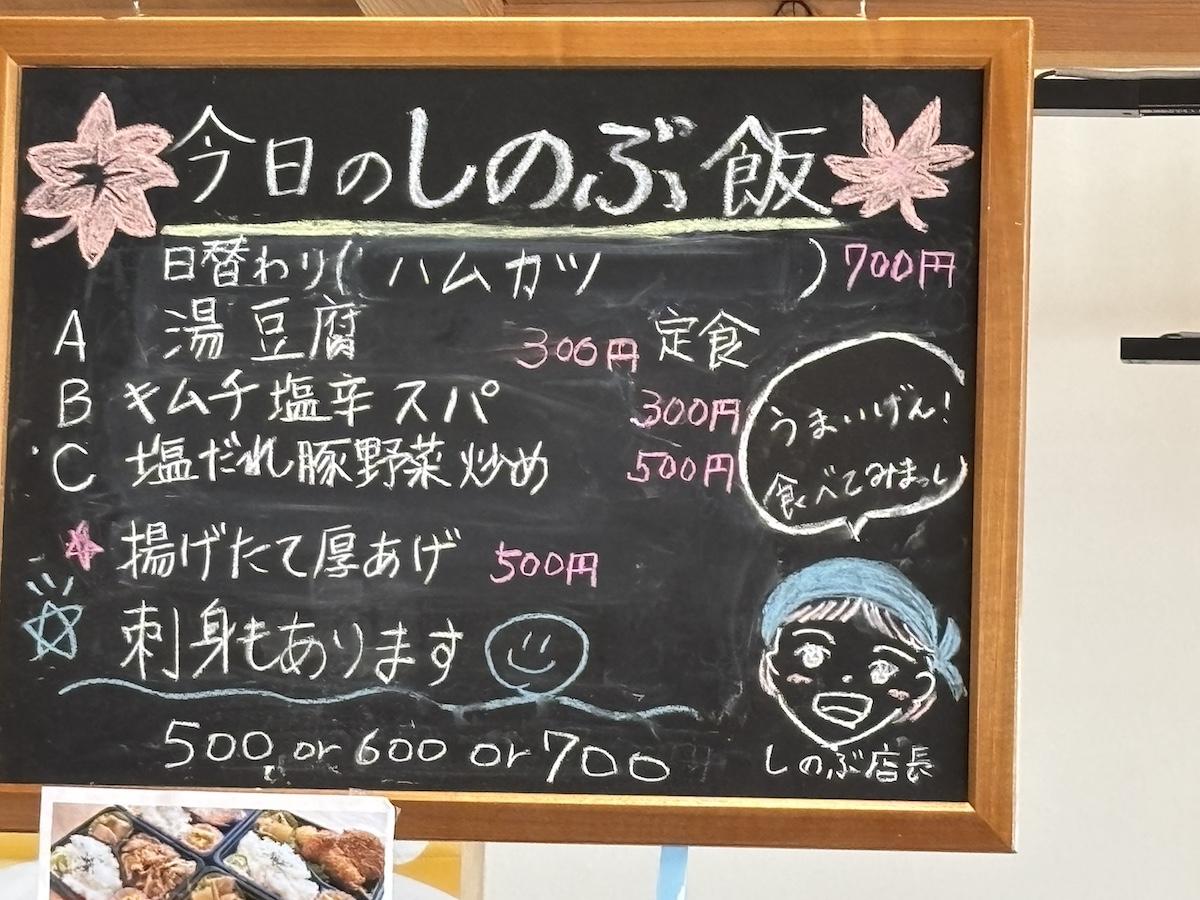 今日のしのぶ飯
日替わり(ハムカツ) 700円
A 湯豆腐 300円 定食
B キムチ塩辛スパ 300円
C 塩だれ豚野菜炒め 500円
うまいげん!
食べてみまっし
揚げたて厚あげ 500円
刺身もあります
500 or 600 or 700
しのぶ店長